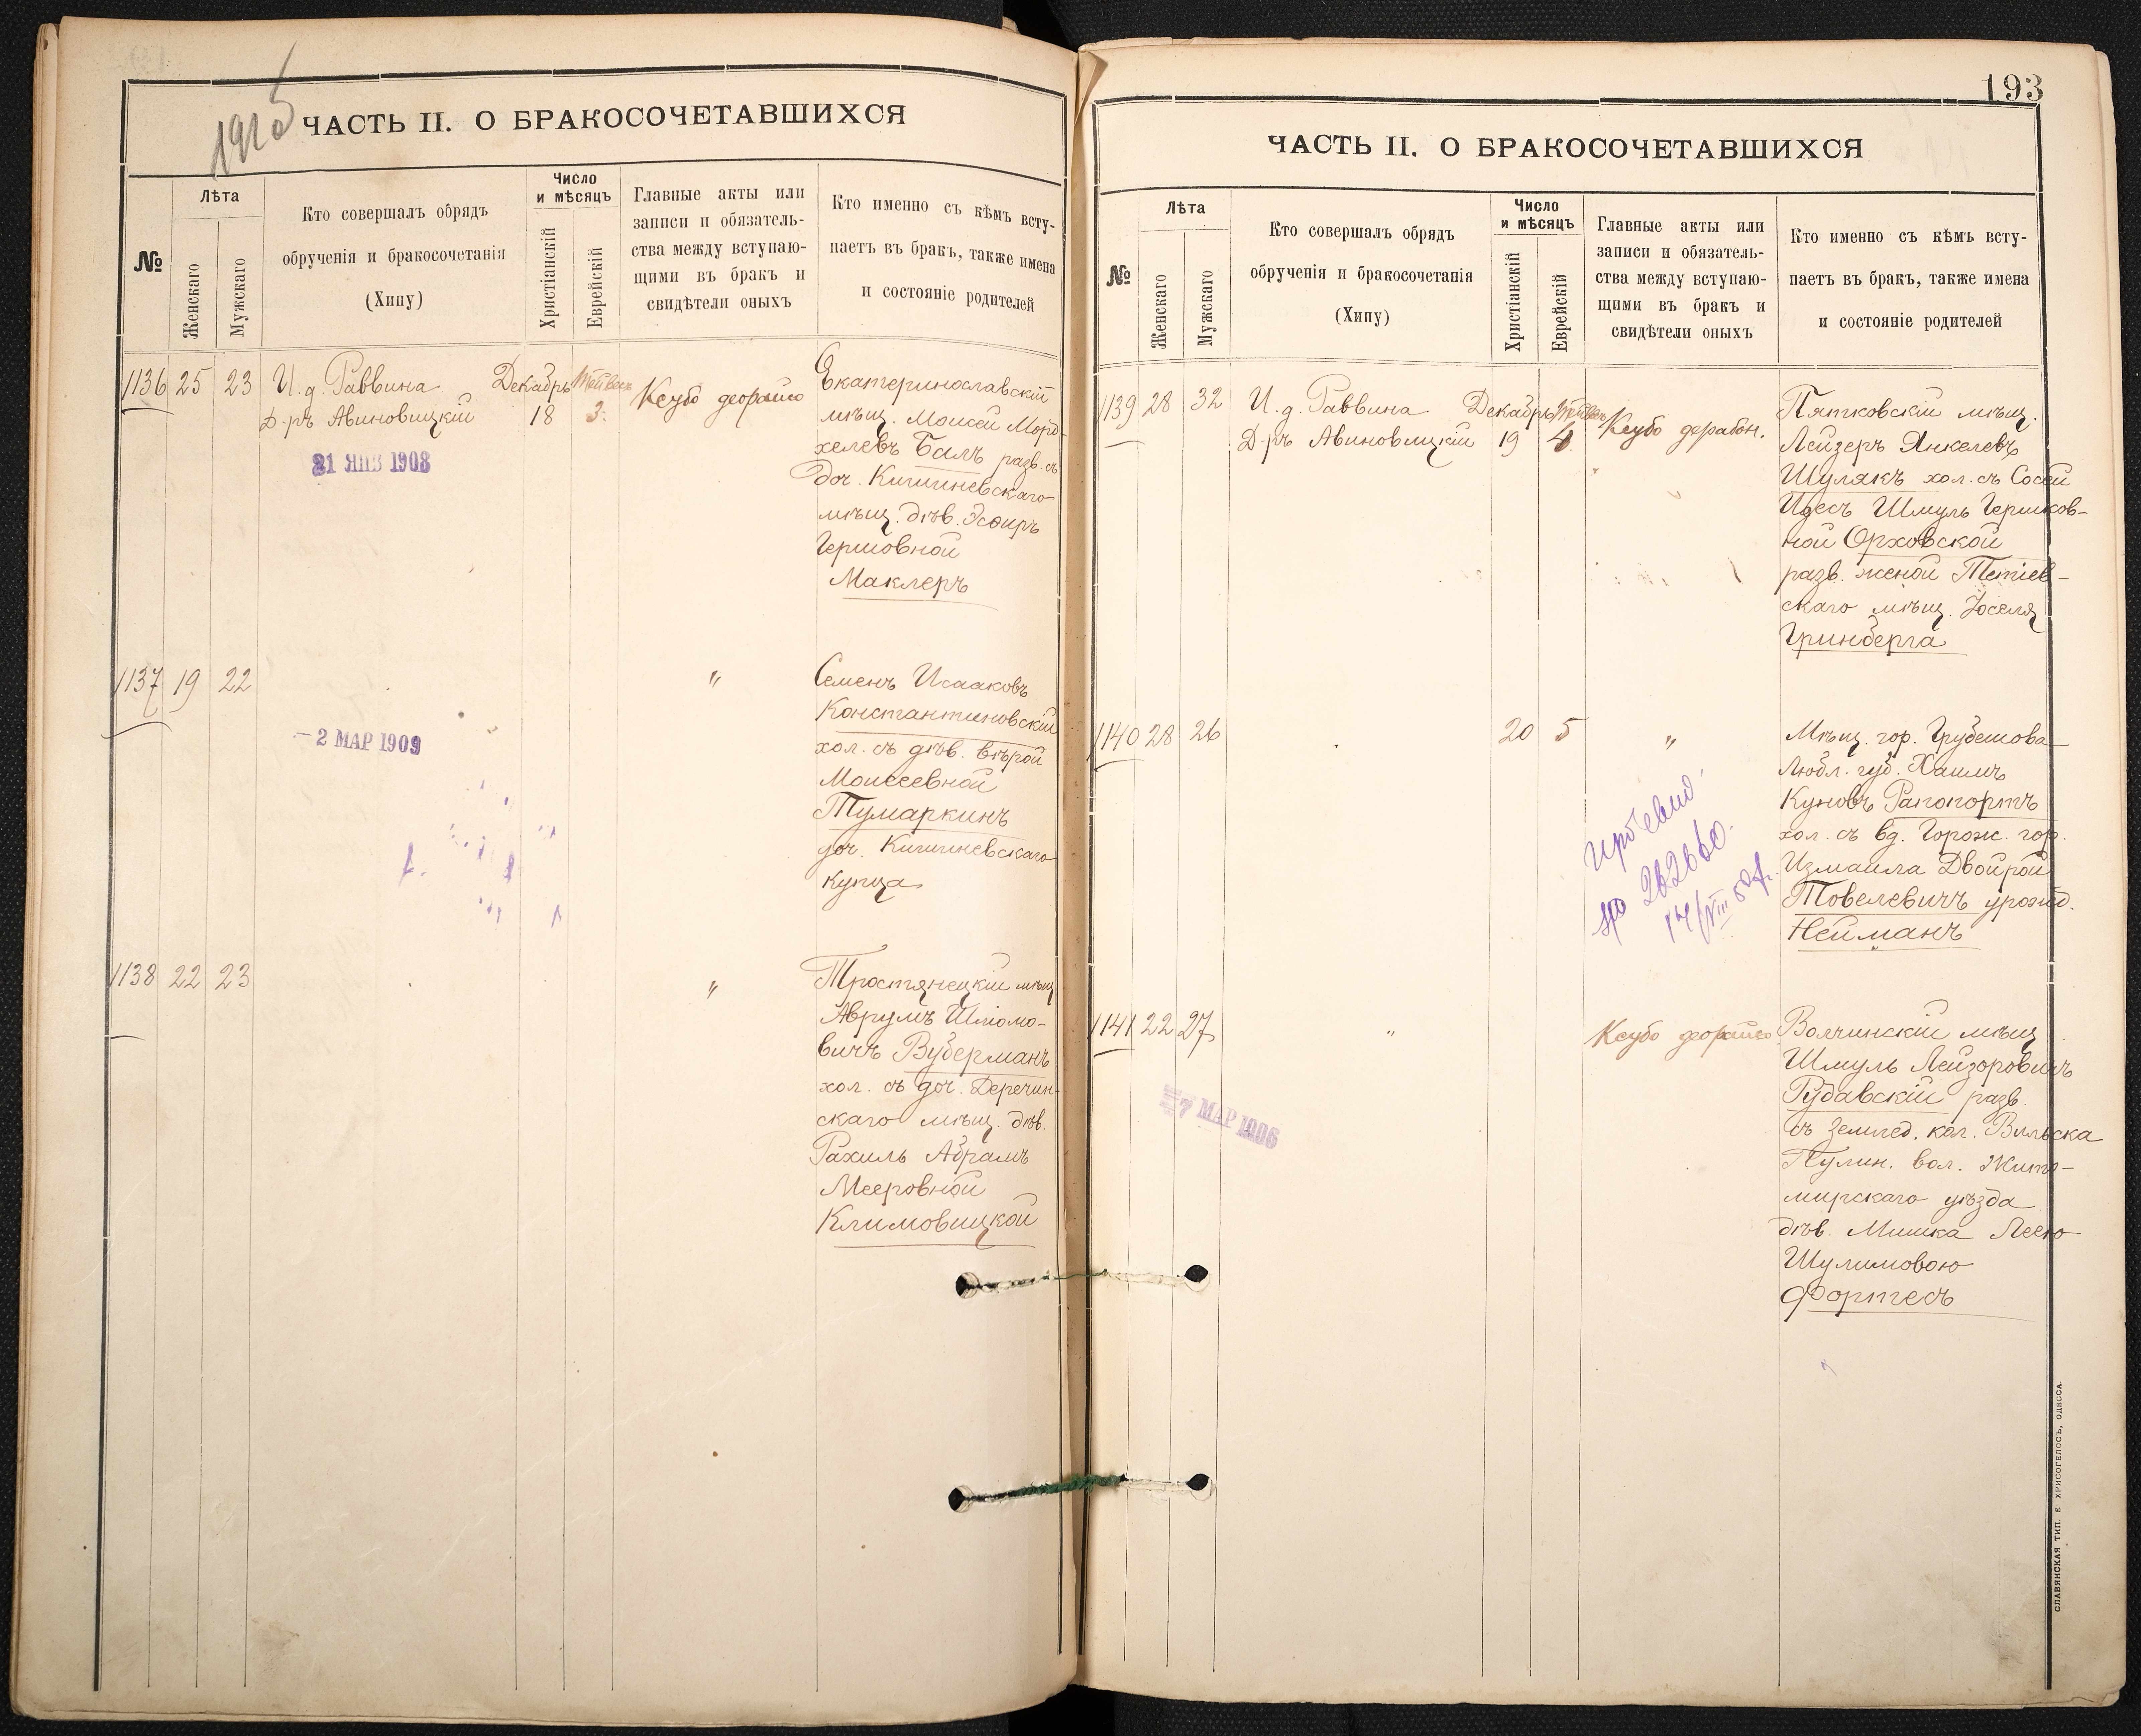 ЧАСТЬ II. О БРАКОСОЧЕТАВШИХСЯ
№
Лѣта
Женскаго
Мужскаго
Кто совершалъ обрядъ
обрученія и бракосочетанія
(Хипу)
Число
и мѣсяцъ
Христіанскій
Еврейскій
Главные акты или
записи и обязатель-
ства между вступаю-
щими въ бракъ и
свидѣтели оныхъ
Кто именно съ кѣмъ всту-
паетъ въ бракъ, также имена
и состояніе родителей
1136 25 23
И.д. Раввина
Д-ръ Авиновицкій
Декабрь
18 3.
Ксубо деорайсо
Екатеринославскій
мѣщ. Моисей Морд-
хелевъ Балъ разв. съ
Доч. Кишиневскаго
мѣщ. дѣв. Эсѳиръ
Гершовной
Маклеръ
21 ЯНВ 1908
1137 19 22
"
Семенъ Исааковъ
Константиновскій
хол. съ дѣв. Вѣрой
Моисеевной
Тумаркинъ
доч. Кишиневскаго
купца
2 МАР 1909
1138 22 23
"
Тростянецкій мѣщ
Аврумъ Шліомо-
вичъ Вуберманъ
хол. съ доч. Деречин-
скаго мѣщ. дѣв.
Рахиль Абрамъ
Мееровной
Климовицкой
193
ЧАСТЬ II. О БРАКОСОЧЕТАВШИХСЯ
№
Лѣта
Женскаго
Мужскаго
Кто совершалъ обрядъ
обрученія и бракосочетанія
(Хипу)
Число
и мѣсяцъ
Христіанскій
Еврейскій
Главные акты или
записи и обязатель-
ства между вступаю-
щими въ бракъ и
свидѣтели оныхъ
Кто именно съ кѣмъ всту-
паетъ въ бракъ, также имена
и состояніе родителей
1139 28 32
И.д. Раввина
Д-ръ Авиновицкій
Декабрь
19 4
Ксубо дерабон.
Пятковскій мѣщ.
Лейзеръ Янкелевъ
Шулякъ хол. съ Сосей
Идесъ Шмуль Гершков-
ной Орховской
разв. женой Тетіев-
скаго мѣщ. Іоселя
Гринберга
1140 28 26
20 5
"
Мѣщ. гор. Грубешова
Любл. губ. Хаимъ
Куновъ Рапопортъ
хол. съ вд. Горож. гор.
Измаила Двойрой
Товелевичъ урожд.
Нейманъ
1141 22 27
"
Ксубо деорайсо
Волчинскій мѣщ
Шмуль Лейзоровичъ
Рудавскій разв.
съ землед. кол. Вильска
Пулин. вол. Жито-
мирскаго уѣзда
дѣв. Мишка Леею
Шулимовою
Фортесъ
7 МАР 1906
СЛАВЯНСКАЯ ТИП. Е. ХРИСОГЕЛОСЪ, ОДЕССА.